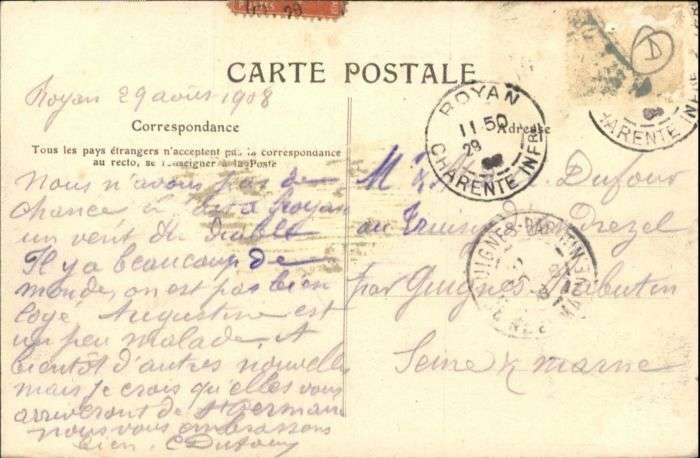 CARTE POSTALE
Royan 29 août 1908
Correspondance
Tous les pays étrangers n'acceptent pas la correspondance
au recto, se renseigner à la Poste
Nous n'avons pas de
chance il fait à Royan
un vent du Diable
Il y a beaucoup de
monde, on est pas bien
logé, Augustine est
un peu malade, A
bientôt d'autres nouvelles
mais je crois qu'elles vous
arriveront de St Germain
nous vous embrassons
bien. C Dufour
Adresse
M Dufour
au
par Guignes-Rabutin
Seine & marne
ROYAN
11 50
29
CHARENTE INFRE
CHARENTE INFRE
GUIGNES-RABUTIN